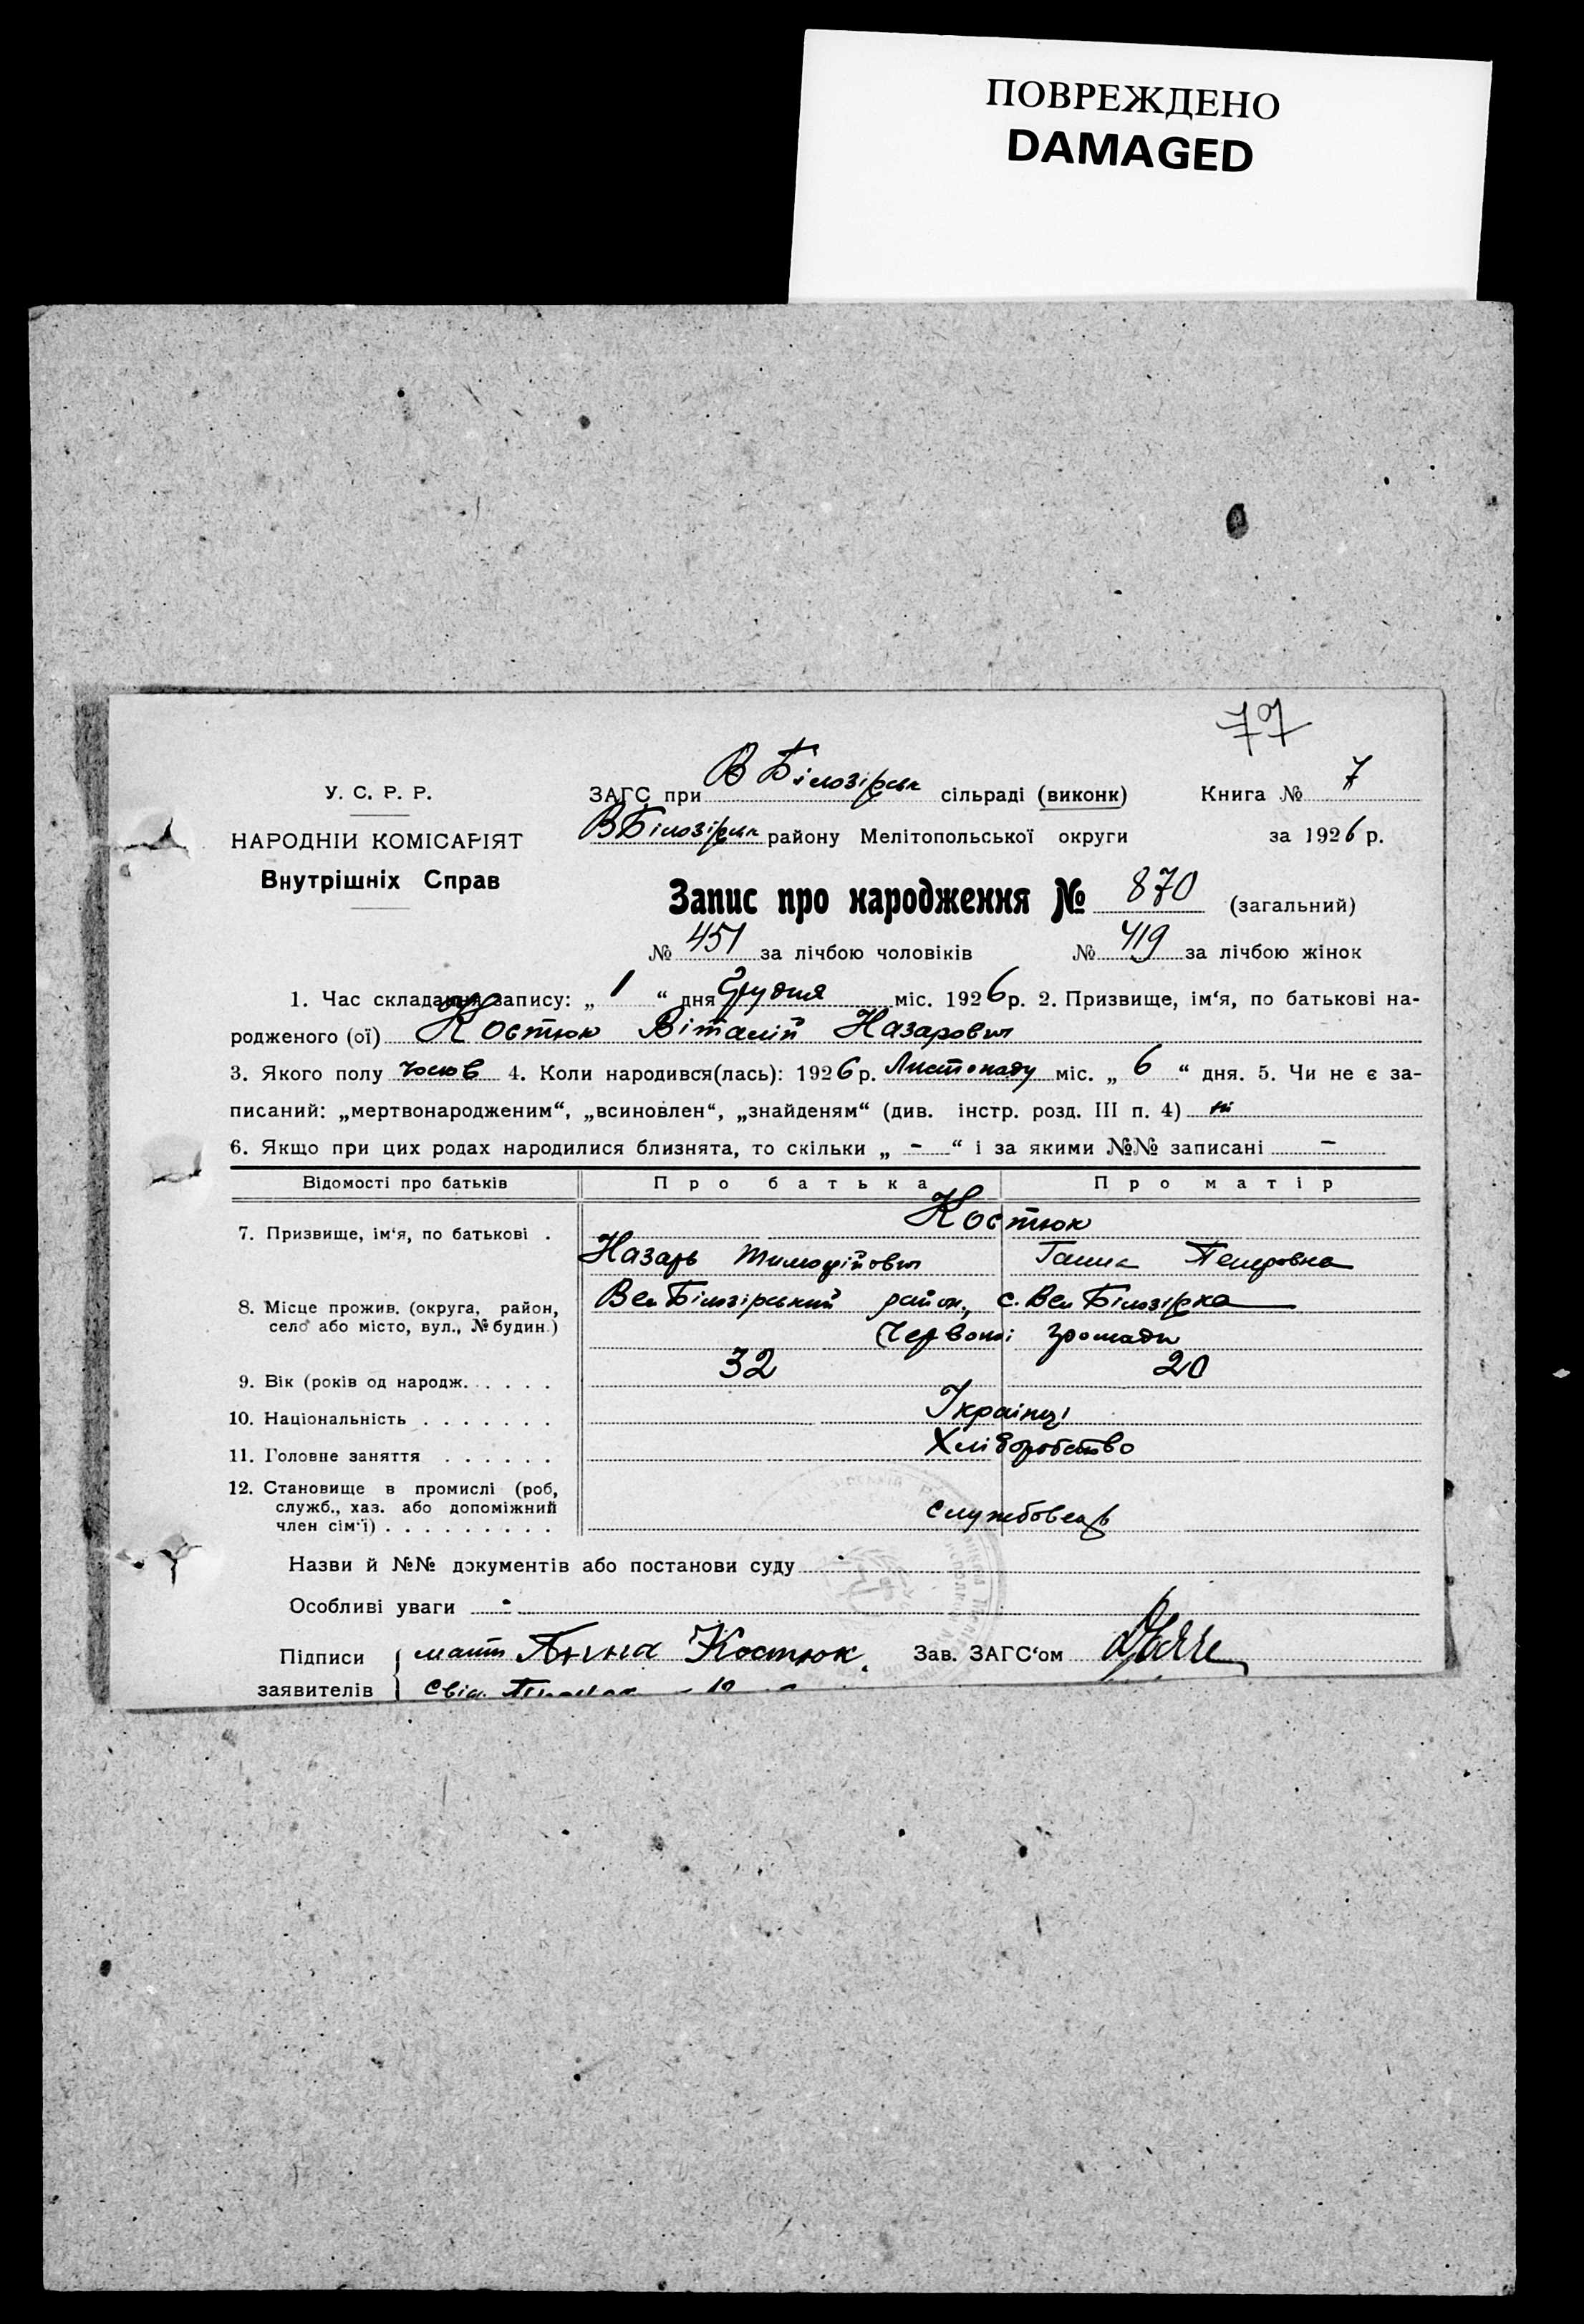 ПОВРЕЖДЕНО
DAMAGED
77
У. С. Р. Р.
НАРОДНІЙ КОМІСАРІЯТ
Внутрішніх Справ
ЗАГС при В Білозірськ сільраді (виконк) Книга № 7
ВБілозірськ району Мелітопольської округи за 1926 р.
Запис про народження № 870 (загальний)
№ 451 за лічбою чоловіків № 419 за лічбою жінок
1. Час складання запису: „ 1 “ дня Грудня міс. 1926 р. 2. Призвище, ім‘я, по батькові на-
родженого (ої) Костюк Віталій Назарович
3. Якого полу чолов 4. Коли народився(лась): 1926 р. Листопаду міс. „ 6 “ дня. 5. Чи не є за-
писаний: „мертвонародженим“, „всиновлен“, „знайденям“ (див. інстр. розд. III п. 4) ні
6. Якщо при цих родах народилися близнята, то скільки „ - “ і за якими №№ записані -
Відомості про батьків Про батька Про матір
7. Призвище, ім‘я, по батькові . Костюк
Назарь Тимофійович Ганна Петровна
8. Місце прожив. (округа, район, Вел Білозірський район, с. Вел Білозірка
село або місто, вул., № будин.) Червоної громади
9. Вік (років од народж. . . . . 32 20
10. Національність . . . . . . . Українці
11. Головне заняття . . . . . . Хліборобство
12. Становище в промислі (роб,
служб., хаз. або допоміжний службовець
член сім‘ї) . . . . . . . . .
Назви й №№ документів або постанови суду -
Особливі уваги -
Підписи мати Анна Костюк Зав. ЗАГС‘ом
заявителів Свід.